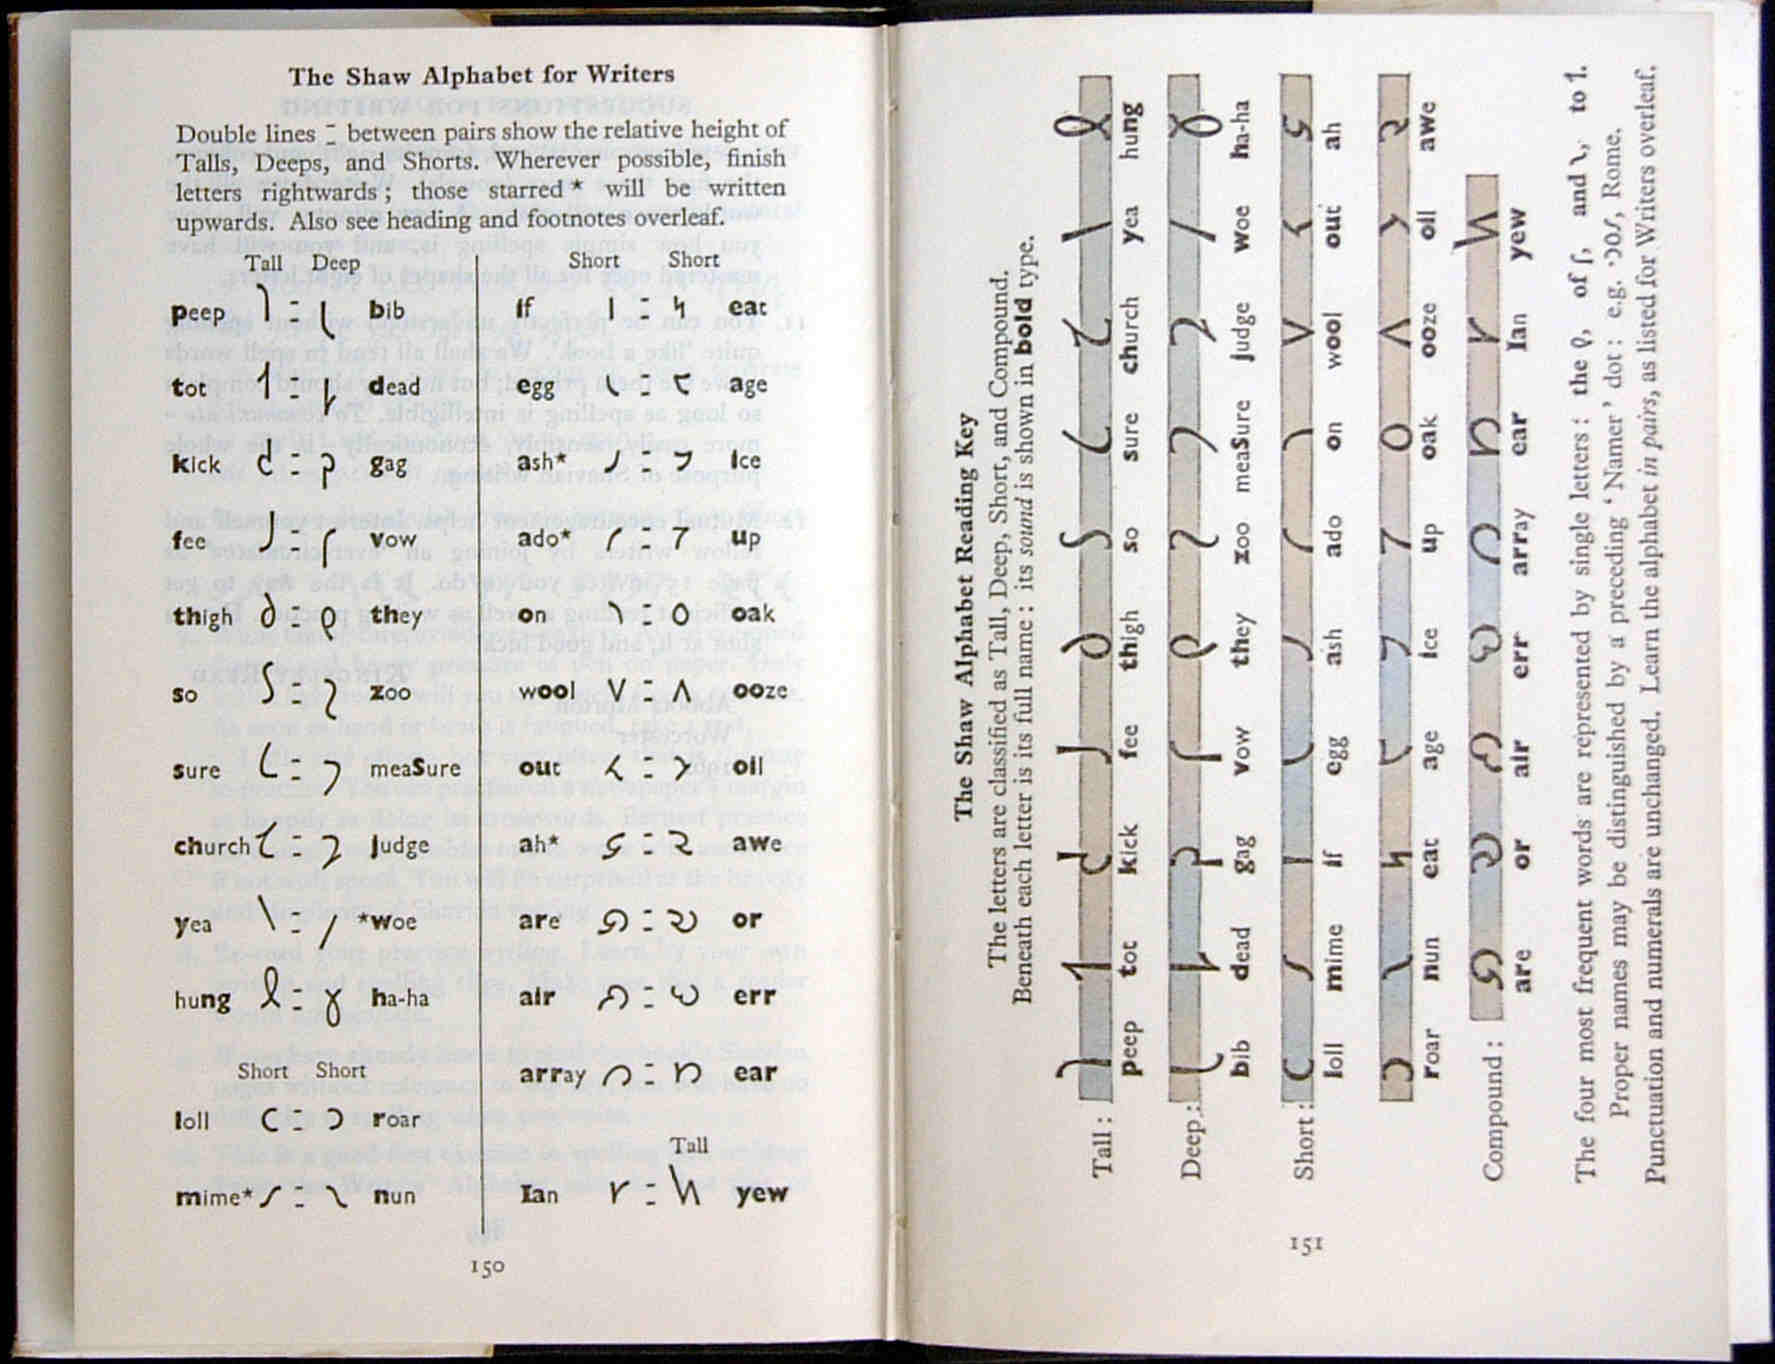 The Shaw Alphabet for Writers
Double lines between pairs show the relative height of
Talls, Deeps, and Shorts. Wherever possible, finish
letters rightwards; those starred * will be written
upwards. Also see heading and footnotes overleaf.
Tall Deep Short Short
peep 𐑐 : 𐑚 bib if 𐑦 : 𐑰 eat
tot 𐑑 : 𐑛 dead egg 𐑧 : 𐑱 age
kick 𐑒 : 𐑜 gag ash* 𐑨 : 𐑲 ice
fee 𐑓 : 𐑝 vow ado* 𐑩 : 𐑳 up
thigh 𐑔 : 𐑞 they on 𐑪 : 𐑴 oak
so 𐑕 : 𐑟 zoo wool 𐑫 : 𐑵 ooze
sure 𐑖 : 𐑠 meaSure out 𐑬 : 𐑶 oil
church 𐑗 : 𐑡 judge ah* 𐑭 : 𐑷 awe
yea 𐑘 : 𐑢 *woe are 𐑸 : 𐑹 or
hung 𐑙 : 𐑣 ha-ha air 𐑺 : 𐑻 err
Short Short array 𐑼 : 𐑽 ear
loll 𐑤 : 𐑮 roar
Tall
mime* 𐑥 : 𐑯 nun Ian 𐑾 : 𐑿 yew
150
The Shaw Alphabet Reading Key
The letters are classified as Tall, Deep, Short, and Compound.
Beneath each letter is its full name : its sound is shown in bold type.
Tall : 𐑐 𐑑 𐑒 𐑓 𐑔 𐑕 𐑖 𐑗 𐑘 𐑙
peep tot kick fee thigh so sure church yea hung
Deep : 𐑚 𐑛 𐑜 𐑝 𐑞 𐑟 𐑠 𐑡 𐑢 𐑣
bib dead gag vow they zoo meaSure judge woe ha-ha
Short : 𐑤 𐑥 𐑦 𐑧 𐑨 𐑩 𐑪 𐑫 𐑬 𐑭
loll mime if egg ash ado on wool out ah
𐑮 𐑯 𐑰 𐑱 𐑲 𐑳 𐑴 𐑵 𐑶 𐑷
roar nun eat age ice up oak ooze oil awe
Compound : 𐑸 𐑹 𐑺 𐑻 𐑼 𐑽 𐑾 𐑿
are or air err array ear Ian yew
The four most frequent words are represented by single letters : the 𐑞, of 𐑝, and 𐑯, to 𐑑.
Proper names may be distinguished by a preceding ‘Namer’ dot : e.g. ·𐑮𐑴𐑥, Rome.
Punctuation and numerals are unchanged. Learn the alphabet in pairs, as listed for Writers overleaf.
151